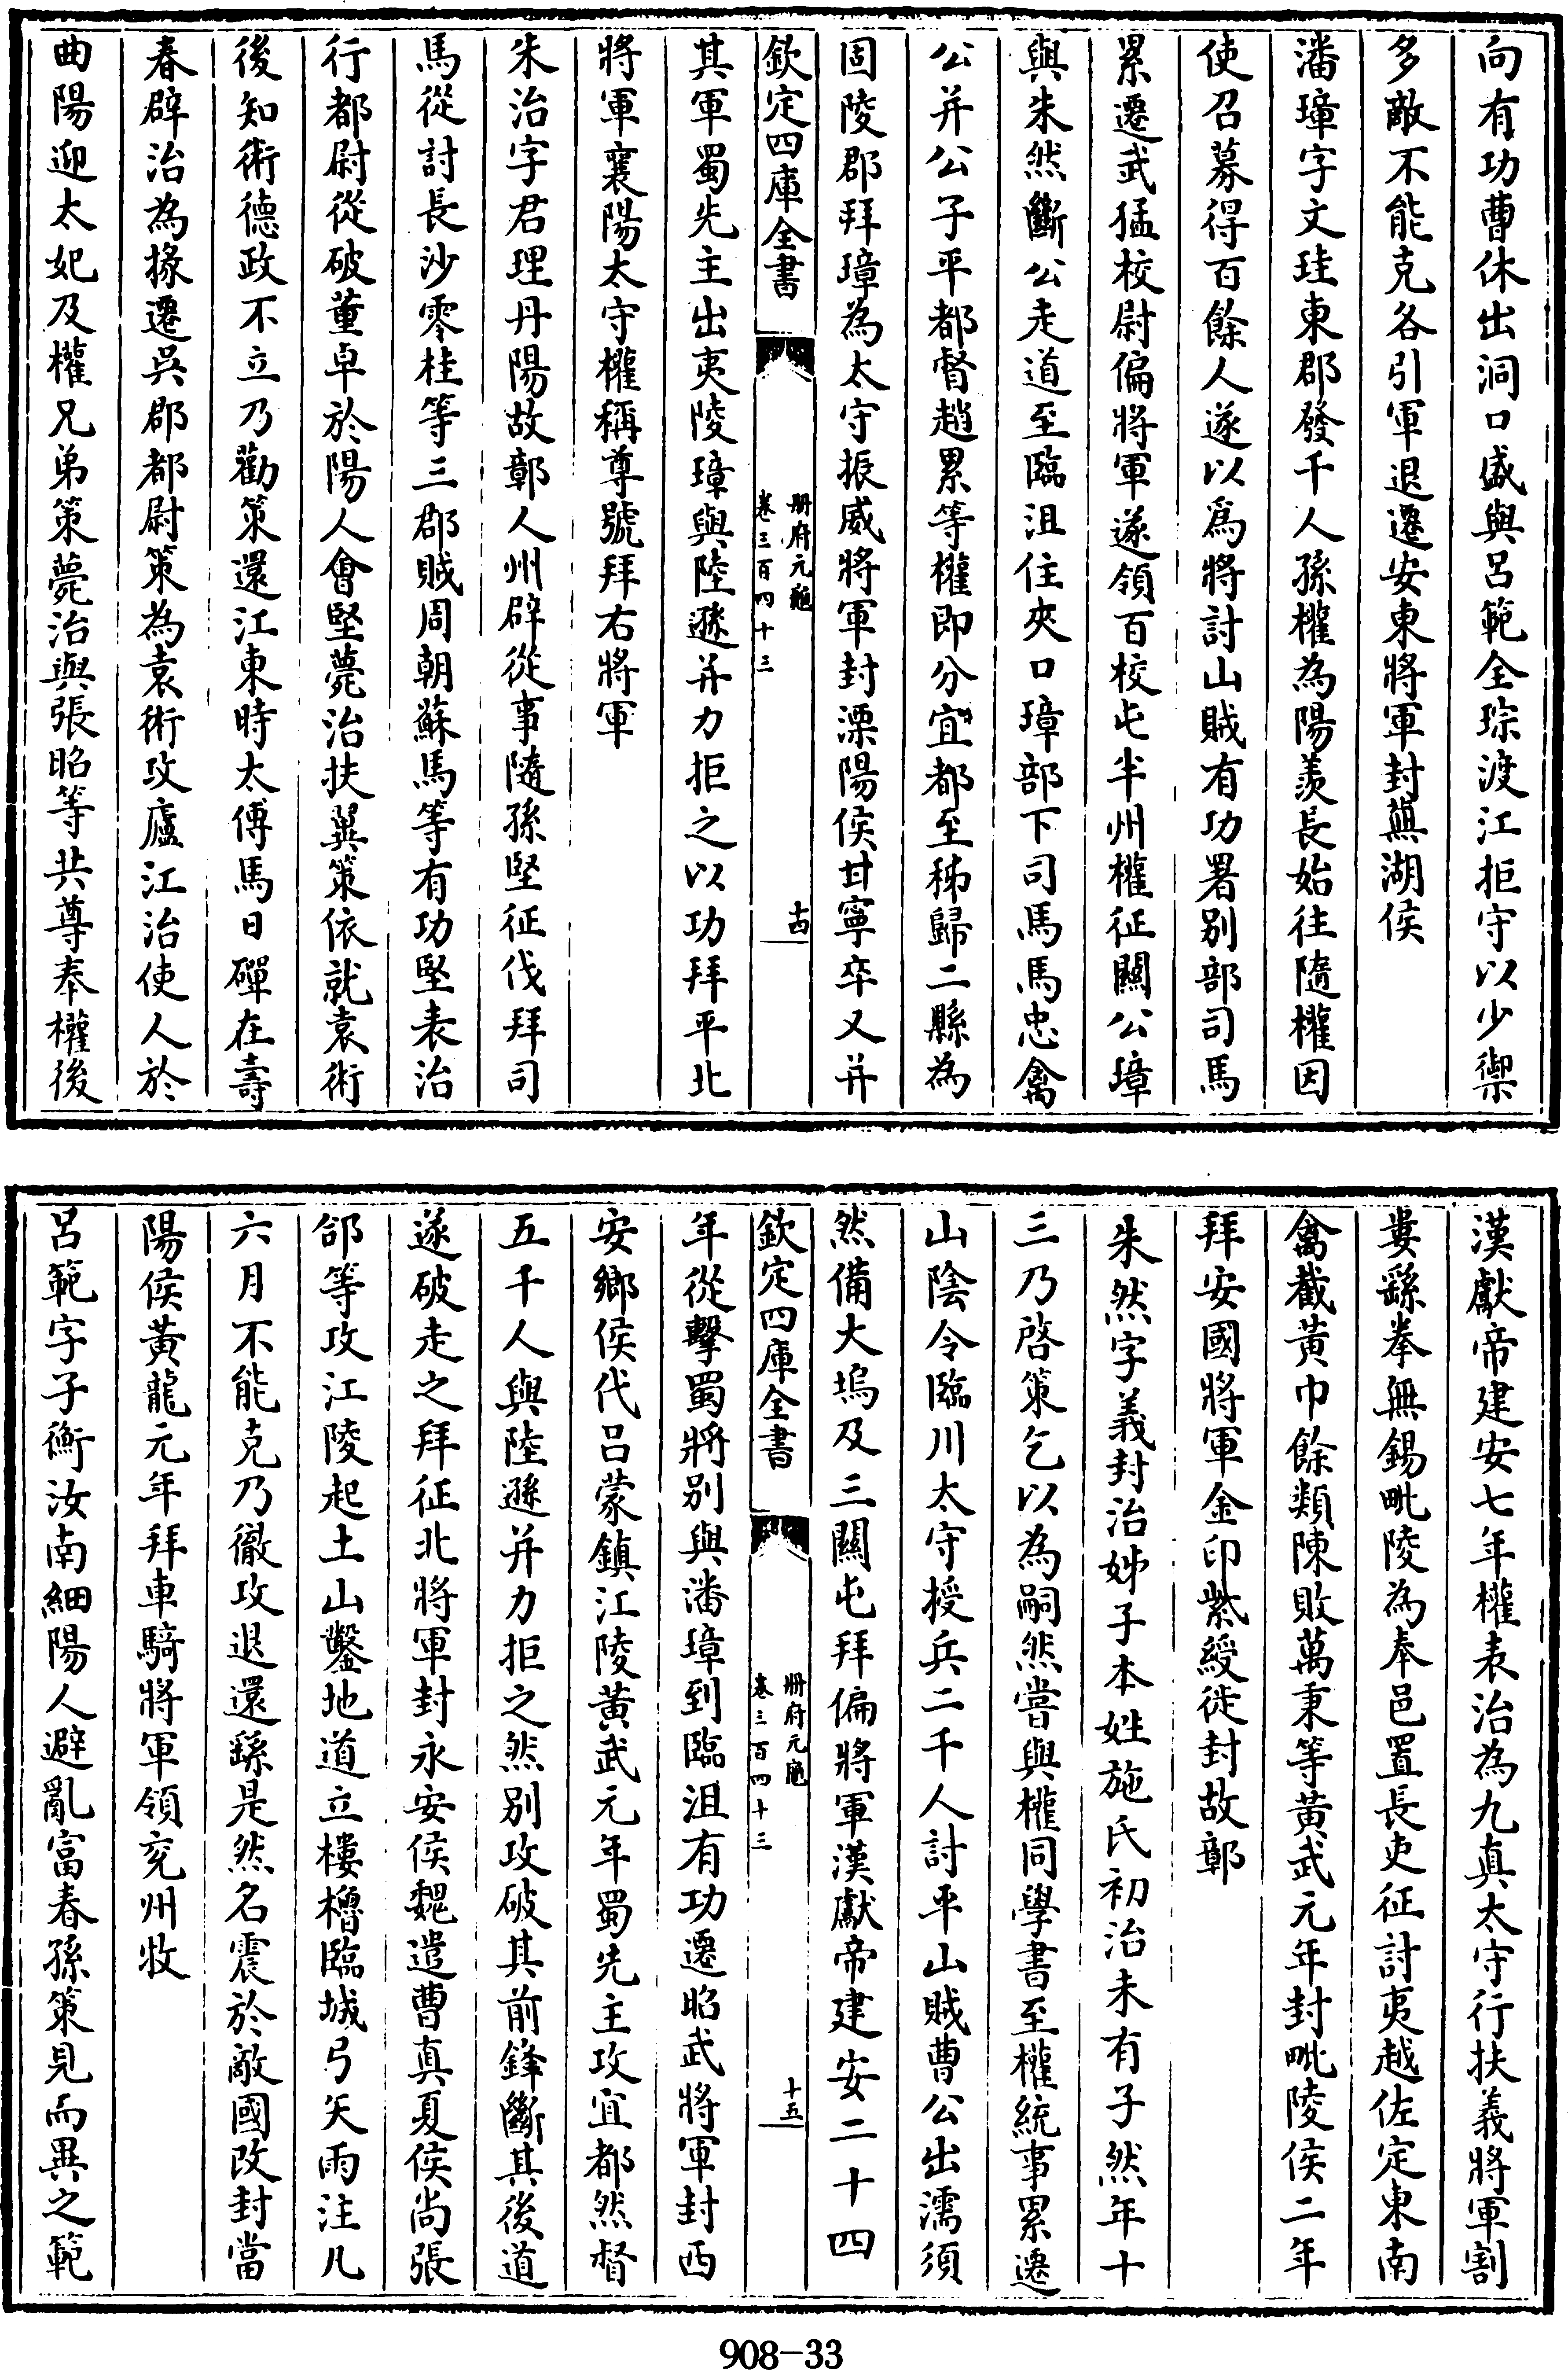 向有功曹休出洞口盛與呂範全琮渡江拒守以少禦
多敵不能克各引軍退遷安東將軍封蕪湖侯
潘璋字文珪東郡發千人孫權為陽羨長始往隨權因
使召募得百餘人遂以爲將討山賊有功署别部司馬
累遷武猛校尉偏將軍遂領百校屯半州權征關公璋
與朱然斷公走道至臨沮住夾口璋部下司馬馬忠禽
公并公子平都督趙累等權即分宜都至秭歸二縣為
固陵郡拜璋為太守振威將軍封溧陽侯甘寧卒又并
欽定四庫全書
册府元龜
卷三百四十三
十四
其軍蜀先主出夷陵璋與陸遜并力拒之以功拜平北
將軍襄陽太守權稱尊號拜右將軍
朱治字君理丹陽故鄣人州辟從事隨孫堅征伐拜司
馬從討長沙零桂等三郡賊周朝蘇馬等有功堅表治
行都尉從破董卓於陽人會堅薨治扶翼策依就袁術
後知術德政不立乃勸策還江東時太傅馬日磾在壽
春辟治為掾遷吳郡都尉策為袁術攻廬江治使人於
曲陽迎太妃及權兄弟策薨治與張昭等共尊奉權後
漢獻帝建安七年權表治為九真太守行扶義將軍割
婁繇拳無錫毗陵為奉邑置長吏征討夷越佐定東南
禽截黃巾餘類陳敗萬秉等黃武元年封毗陵侯二年
拜安國將軍金印紫綬徙封故鄣
朱然字義封治姊子本姓施氏初治未有子然年十
三乃啓策乞以為嗣然嘗與權同學書至權統事累遷
山陰令臨川太守授兵二千人討平山賊曹公出濡須
然備大塢及三關屯拜偏將軍漢獻帝建安二十四
欽定四庫全書
册府元龜
卷三百四十三
十五
年從擊蜀將别與潘璋到臨沮有功遷昭武將軍封西
安鄉侯代呂蒙鎮江陵黃武元年蜀先主攻宜都然督
五千人與陸遜并力拒之然别攻破其前鋒斷其後道
遂破走之拜征北將軍封永安侯魏遣曹真夏侯尚張
郃等攻江陵起土山鑿地道立樓櫓臨城弓矢雨注凡
六月不能克乃徹攻退還繇是然名震於敵國改封當
陽侯黃龍元年拜車騎將軍領兖州牧
呂範字子衡汝南細陽人避亂富春孫策見而異之範
908-33